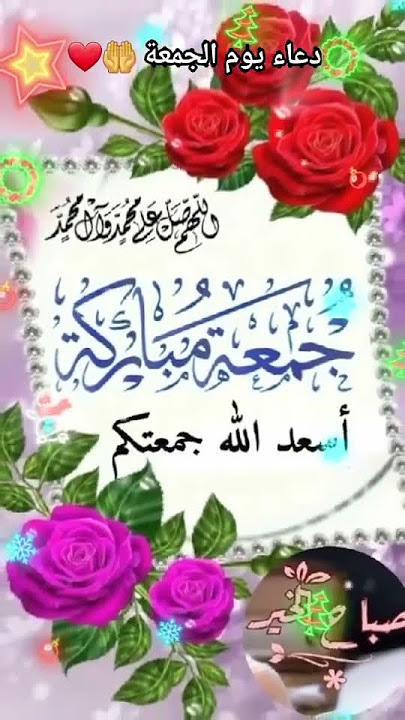 دعاء يوم الجمعة 🤲❤️
اللهم صل على محمد وآل محمد
جمعة مباركة
أسعد الله جمعتكم
صباح الخير